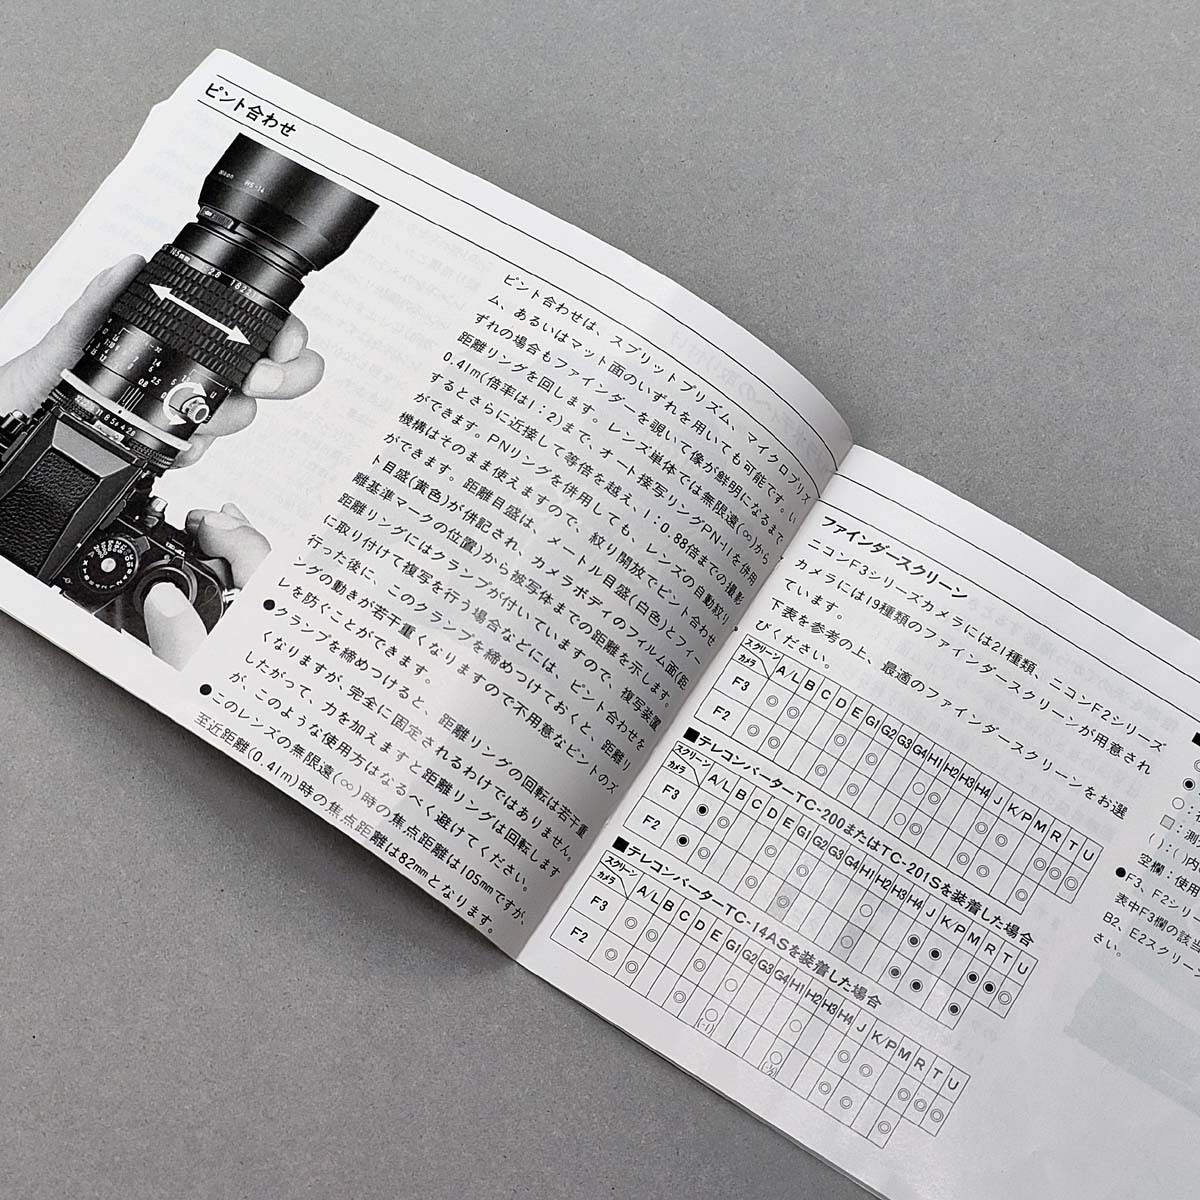 ピント合わせ
Nikon HS-14
105mm 1:2.8
ピント合わせは、スプリットプリズム、マイクロプリズ
ム、あるいはマット面のいずれを用いても可能です。い
ずれの場合もファインダーを覗いて像が鮮明になるまで
距離リングを回します。レンズ単体では無限遠(∞)から
0.41m(倍率は1:2)まで、オート接写リングPN-11を併用
するとさらに近接して等倍を越え、1:0.88倍までの撮影
ができます。PNリングを併用しても、レンズの自動絞り
機構はそのまま使えますので、絞り開放でピント合わせ
ができます。距離目盛は、メートル目盛(白色)とフィー
ト目盛(黄色)が併記され、カメラボディのフィルム面(距
離基準マークの位置)から被写体までの距離を示します。
距離リングにはクランプが付いていますので、複写装置
に取り付けて複写を行う場合などには、ピント合わせを
行った後に、このクランプを締めつけておくと、距離リ
ングの動きが若干重くなりますので不用意なピントのズ
レを防ぐことができます。
●クランプを締めつけると、距離リングの回転は若干重
くなりますが、完全に固定されるわけではありません。
したがって、力を加えますと距離リングは回転します
が、このような使用方はなるべく避けてください。
●このレンズの無限遠(∞)時の焦点距離は105mmですが、
至近距離(0.41m)時の焦点距離は82mmとなります。
ファインダースクリーン
ニコンF3シリーズカメラには21種類、ニコンF2シリーズ
カメラには19種類のファインダースクリーンが用意され
ています。
下表を参考の上、最適のファインダースクリーンをお選
びください。
スクリーン カメラ A/L B C D E G1 G2 G3 G4 H1 H2 H3 H4 J K/P M R T U
F3
F2
■テレコンバーターTC-200またはTC-201Sを装着した場合
スクリーン カメラ A/L B C D E G1 G2 G3 G4 H1 H2 H3 H4 J K/P M R T U
F3
F2
■テレコンバーターTC-14ASを装着した場合
スクリーン カメラ A/L B C D E G1 G2 G3 G4 H1 H2 H3 H4 J K/P M R T U
F3
F2
():()内
空欄:使用
●F3、F2シリ
表中F3欄の該当
B2、E2スクリーン
さい。